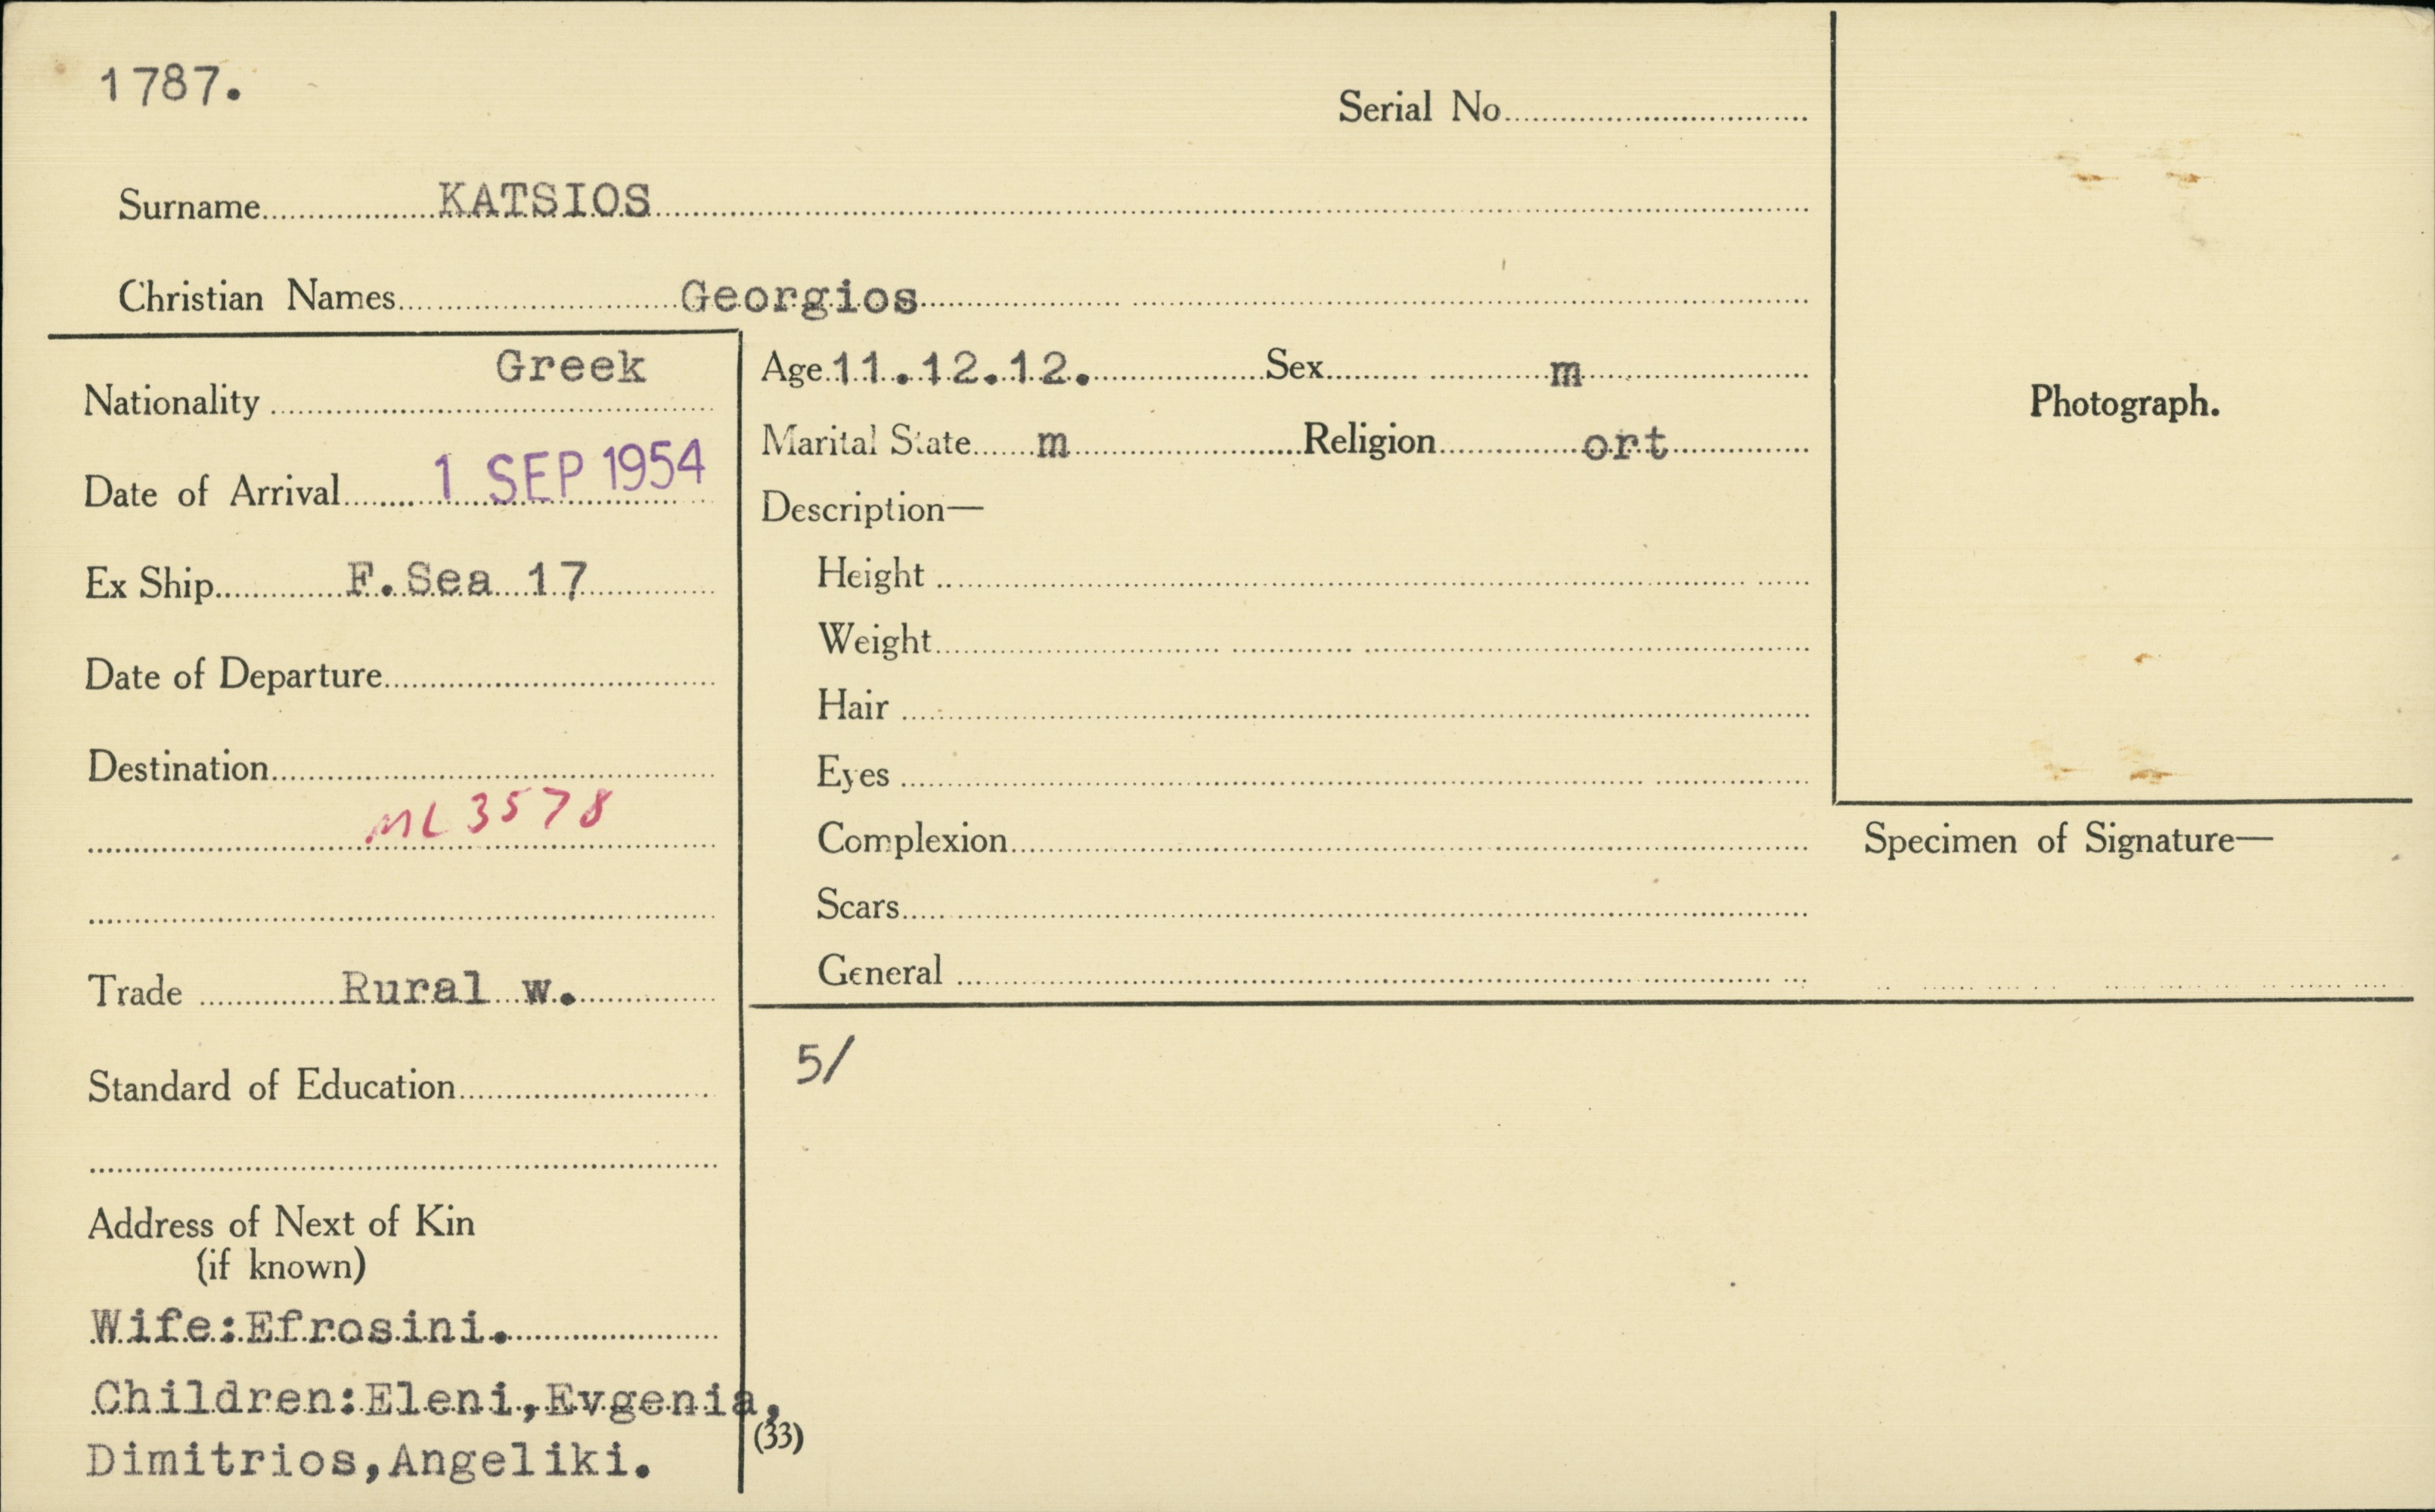 1787.
Serial No
Surname KATSIOS
Christian Names Georgios
Nationality Greek
Date of Arrival 1 SEP 1954
Ex Ship F.Sea 17
Date of Departure
Destination
ML 3578
Trade Rural w.
Standard of Education
Address of Next of Kin
(if known)
Wife:Efrosini.
Children:Eleni,Evgenia,
Dimitrios,Angeliki.
Age 11.12.12. Sex m
Marital State m Religion ort
Description—
Height
Weight
Hair
Eyes
Complexion
Scars
General
5/
(33)
Photograph.
Specimen of Signature—